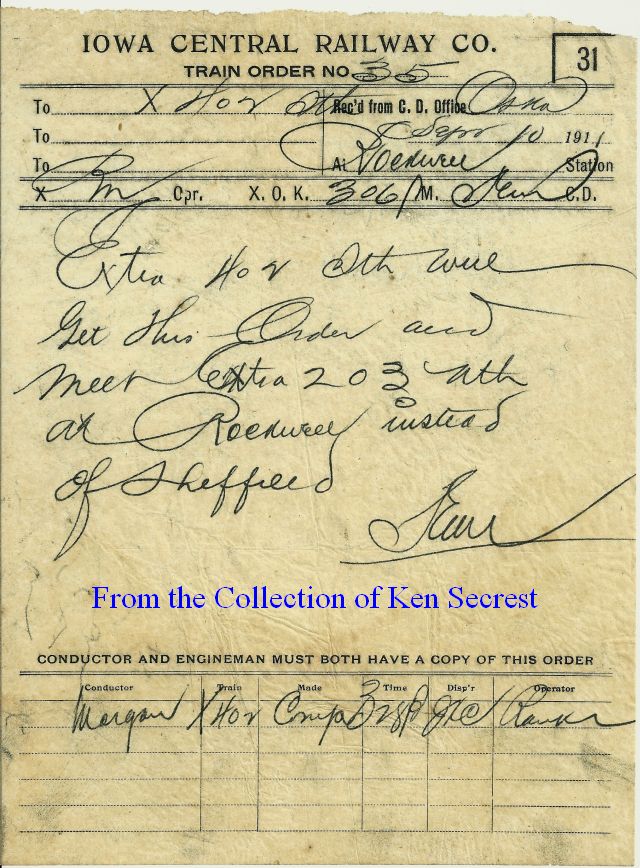 IOWA CENTRAL RAILWAY CO.
31
TRAIN ORDER NO. 35
To X 402 Sth Rec'd from C. D. Office Oska
To Sept 10 1911
To At Rockwell Station
X Opr. X. O. K. 306 P M. C.D.
Extra 402 Sth will
Get this Order and
meet Extra 203 Nth
at Rockwell instead
of Sheffield
From the Collection of Ken Secrest
CONDUCTOR AND ENGINEMAN MUST BOTH HAVE A COPY OF THIS ORDER
Conductor Train Made Time Disp'r Operator
Morgan X402 Comp